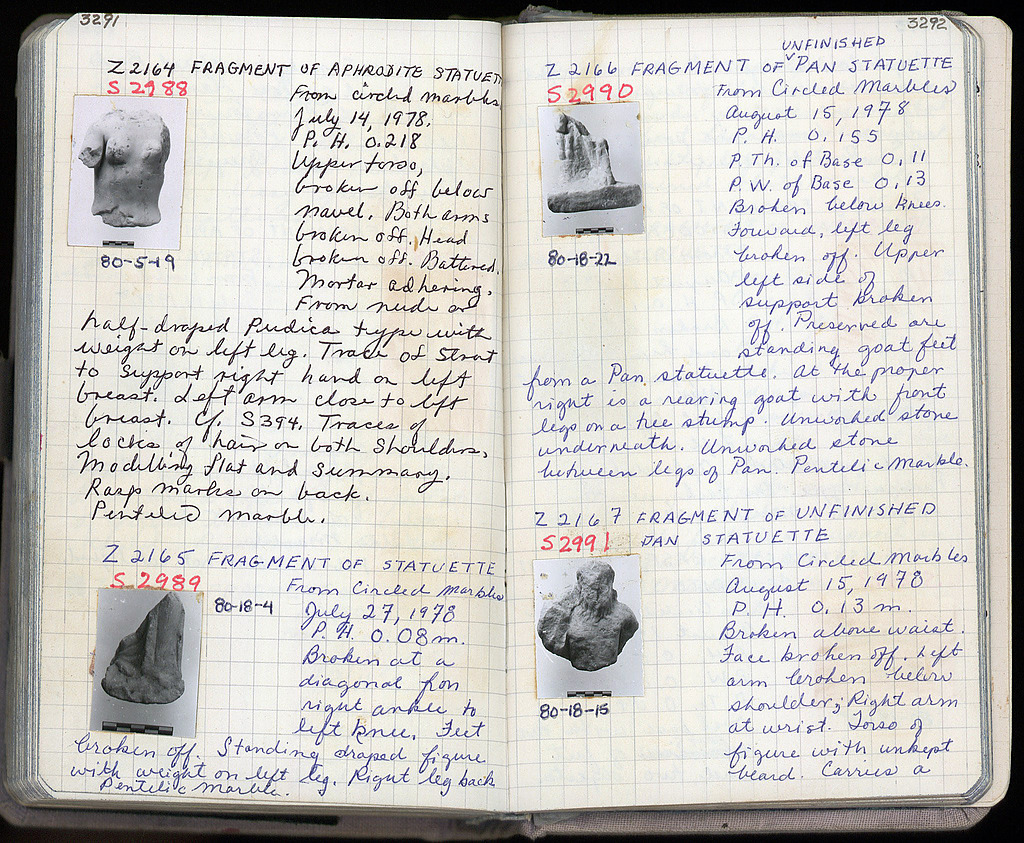 3291
Z 2164 FRAGMENT OF APHRODITE STATUETT
S 2988
From circled marbles
July 14, 1978.
P. H. 0.218
Upper torso,
broken off below
navel. Both arms
broken off. Head
broken off. Battered.
Mortar adhering.
From nude or
80-5-19
half-draped Pudica type with
weight on left leg. Trace of Strut
to support right hand on left
breast. Left arm close to left
breast. Cf. S394. Traces of
locks of hair on both shoulders.
Modelling flat and summary.
Rasp marks on back.
Pentelic marble.
Z 2165 FRAGMENT OF STATUETTE
S 2989
From Circled marbles
80-18-4
July 27, 1978
P. H. 0.08m.
Broken at a
diagonal from
right ankle to
left knee. Feet
broken off. Standing draped figure
with weight on left leg. Right leg back
Pentelic marble.
3292
UNFINISHED
Z 2166 FRAGMENT OF PAN STATUETTE
S 2990
From Circled Marbles
August 15, 1978
P. H. 0.155
P. Th. of Base 0.11
P. W. of Base 0.13
Broken below knees.
Forward, left leg
broken off. Upper
left side of
support broken
off. Preserved are
standing goat feet
80-18-22
from a Pan statuette. At the proper
right is a rearing goat with front
legs on a tree stump. Unworked stone
underneath. Unworked stone
between legs of Pan. Pentelic Marble.
Z 2167 FRAGMENT OF UNFINISHED
S 2991 PAN STATUETTE
From Circled Marbles
August 15, 1978
P. H. 0.13 m.
Broken above waist.
Face broken off. Left
arm broken below
shoulder; Right arm
at wrist. Torso of
figure with unkept
beard. Carries a
80-18-15